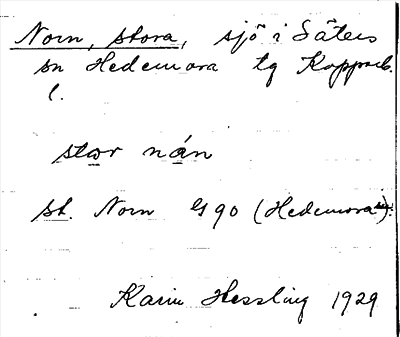 Norn, stora, sjö i Säters
sn Hedemora tg Kopparb.
l.
stor nán
st. Norn Gs 90 (Hedemora).
Karin Hessling 1929